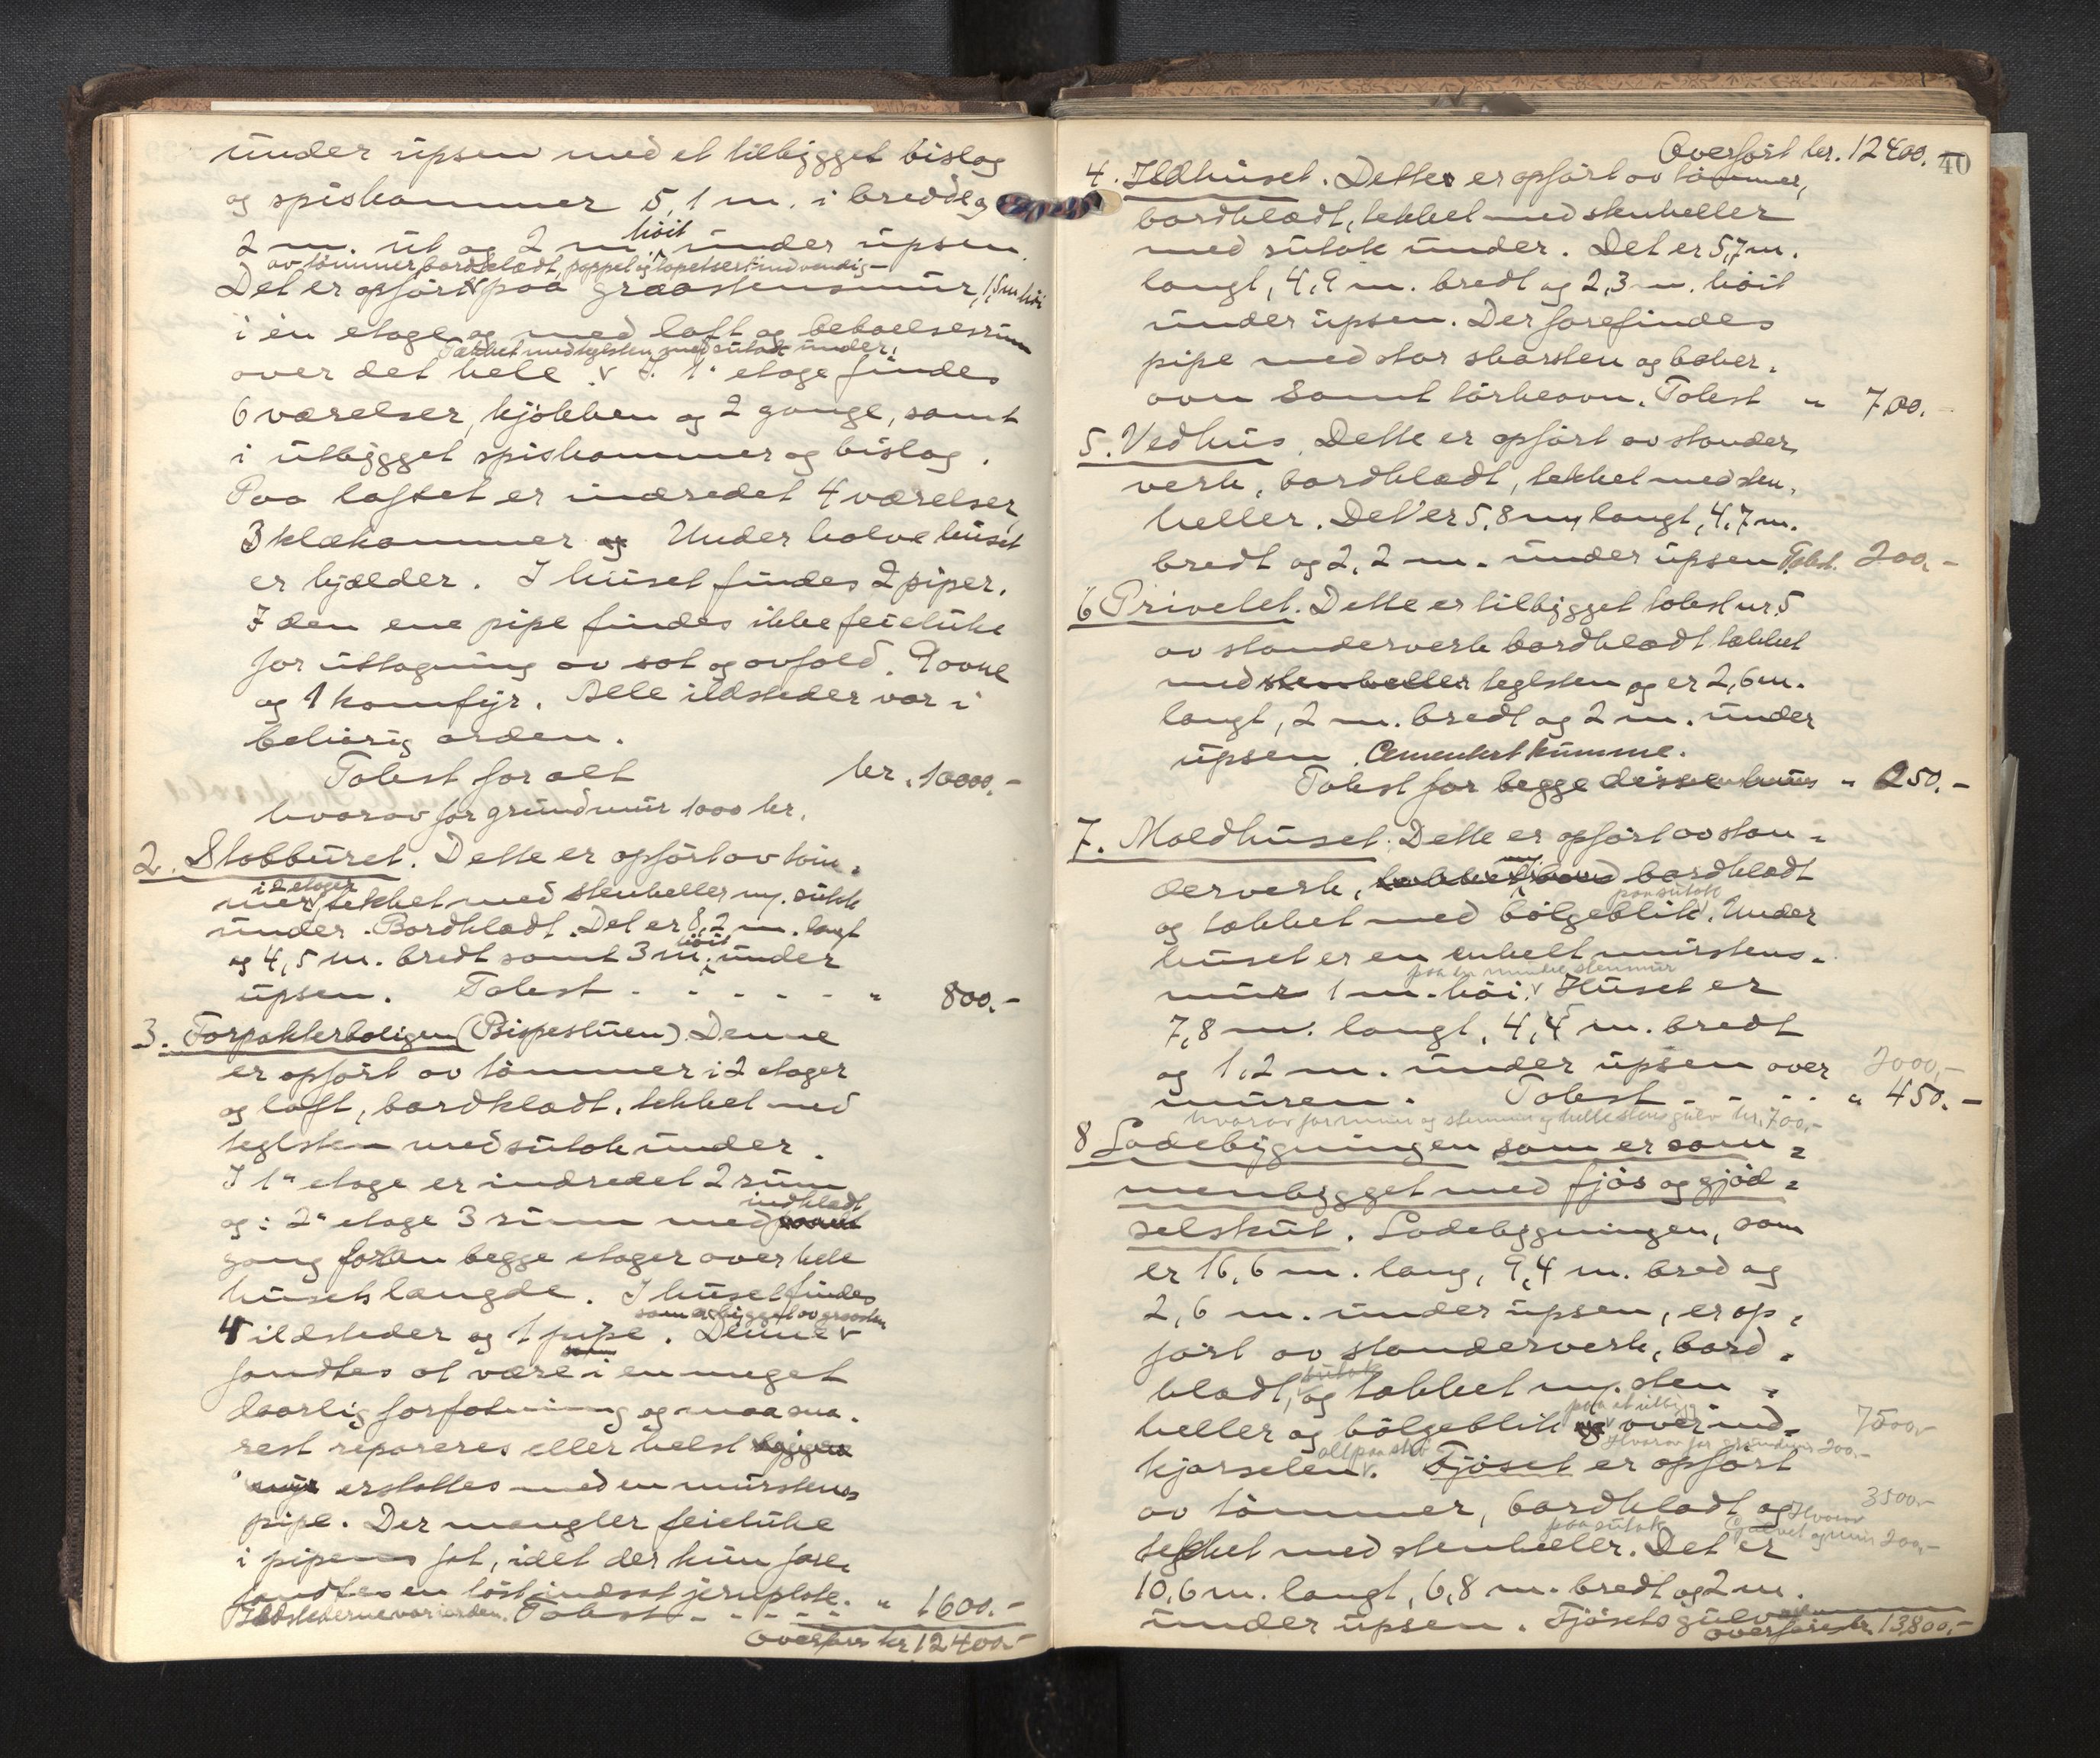 under upsen med et tilbygget bislag
og spiskammer 5,1 m. i bredde og
2 m. ut og 2 m høit under upsen.
av tømmer, bordklædt, pappet og tapetsert indvendig –
Det er opført paa graastensmur, 1,5 m høi
i én etage og med loft og beboelsesrum
Tækket med teglsten med sutak under.
over det hele. I 1ª etage findes
6 værelser, kjøkken og 2 gange, samt
i utbygget spiskammer og bislag.
Paa loftet er indredet 4 værelser,
3 klækammer og Under halve huset
er kjælder. I huset findes 2 piper.
I den ene pipe findes ikke feieluke
for uttagning av sot og avfald. 9 ovne
og 1 komfyr. Alle ildsteder var i
behørig orden.
Takst for alt kr. 10000.–
hvorav for grundmur 1000 kr.
2. Stabburet. Dette er opført av tøm-
i 2 etager
mer, tekket med stenheller m. sutak
under. Bordklædt. Det er 8,2 m. langt
og 4,5 m. bredt samt 3 m. høit under
upsen. Takst - - - - - " 800.–
3. Forpakterboligen (Bispestuen). Denne
er opført av tømmer i 2 etager
og loft, bordklædt, tekket med
teglsten med sutak under.
I 1ª etage er indredet 2 rum
indklædt
og i 2ª etage 3 rum med
gang foran begge etager over hele
husets længde. I huset findes
som er bygget av graasten
4 ildsteder og 1 pipe. Denne
fandtes at være i en meget
daarlig forfatning og maa sna-
rest repareres eller helst
erstattes med en murstens
pipe. Der mangler feieluke
i pipens fot, idet der kun fore-
fandtes en løst indsat jernplate.
Ildstederne var i orden. Takst - - - - " 1600.–
Overføres kr. 12400.–
40
Overført kr. 12400.–
4. Ildhuset. Dette er opført av tømmer,
bordklædt, tekket med stenheller
med sutak under. Det er 5,7 m.
langt, 4,9 m. bredt og 2,3 m. høit
under upsen. Der forefindes
pipe med stor skorsten og baker-
ovn samt tørkeovn. Takst " 700.–
5. Vedhus. Dette er opført av stender
verk, bordklædt, tekket med sten-
heller. Det er 5,8 m. langt, 4,7 m.
bredt og 2,2 m. under upsen Takst. 200.–
6 Privetet. Dette er tilbygget takst nr. 5
av stenderverk bordklædt tækket
med stenheller teglsten og er 2,6 m.
langt, 2 m. bredt og 2 m. under
upsen. Cementert kumme.
Takst for begge disse huus " 250.–
7. Moldhuset. Dette er opført av sten-
derverk, bordklædt
paa sutak
og tækket med bølgeblik. Under
huset er en enkelt murstens-
paa en mindre stenmur
mur 1 m. høi. Huset er
7,8 m. langt, 4,4 m. bredt
og 1,2 m. under upsen over 2000.–
muren. Takst - - - - " 450.–
hvorav for mur og stenmur og hellestens gulv kr. 700.–
8 Ladebygningen som er sam-
menbygget med fjøs og gjød-
selskut. Ladebygningen, som
er 16,6 m. lang, 9,4 m. bred og
2,6 m. under upsen, er op-
ført av stenderverk, bord-
sutak
klædt, og tækket m. sten-
paa et utbygg
heller og bølgeblik over ind- 7500.–
alt paa sten Hvorav for grundmur 200.–
kjørselen. Fjøset er opført
av tømmer, bordklædt og 3500.–
paa sutak Hvorav Gulvet og mur 200.–
tekket med stenheller. Det er
10,6 m. langt, 6,8 m. bredt og 2 m.
under upsen. Fjøsets gulv
overføres kr. 13,800.–